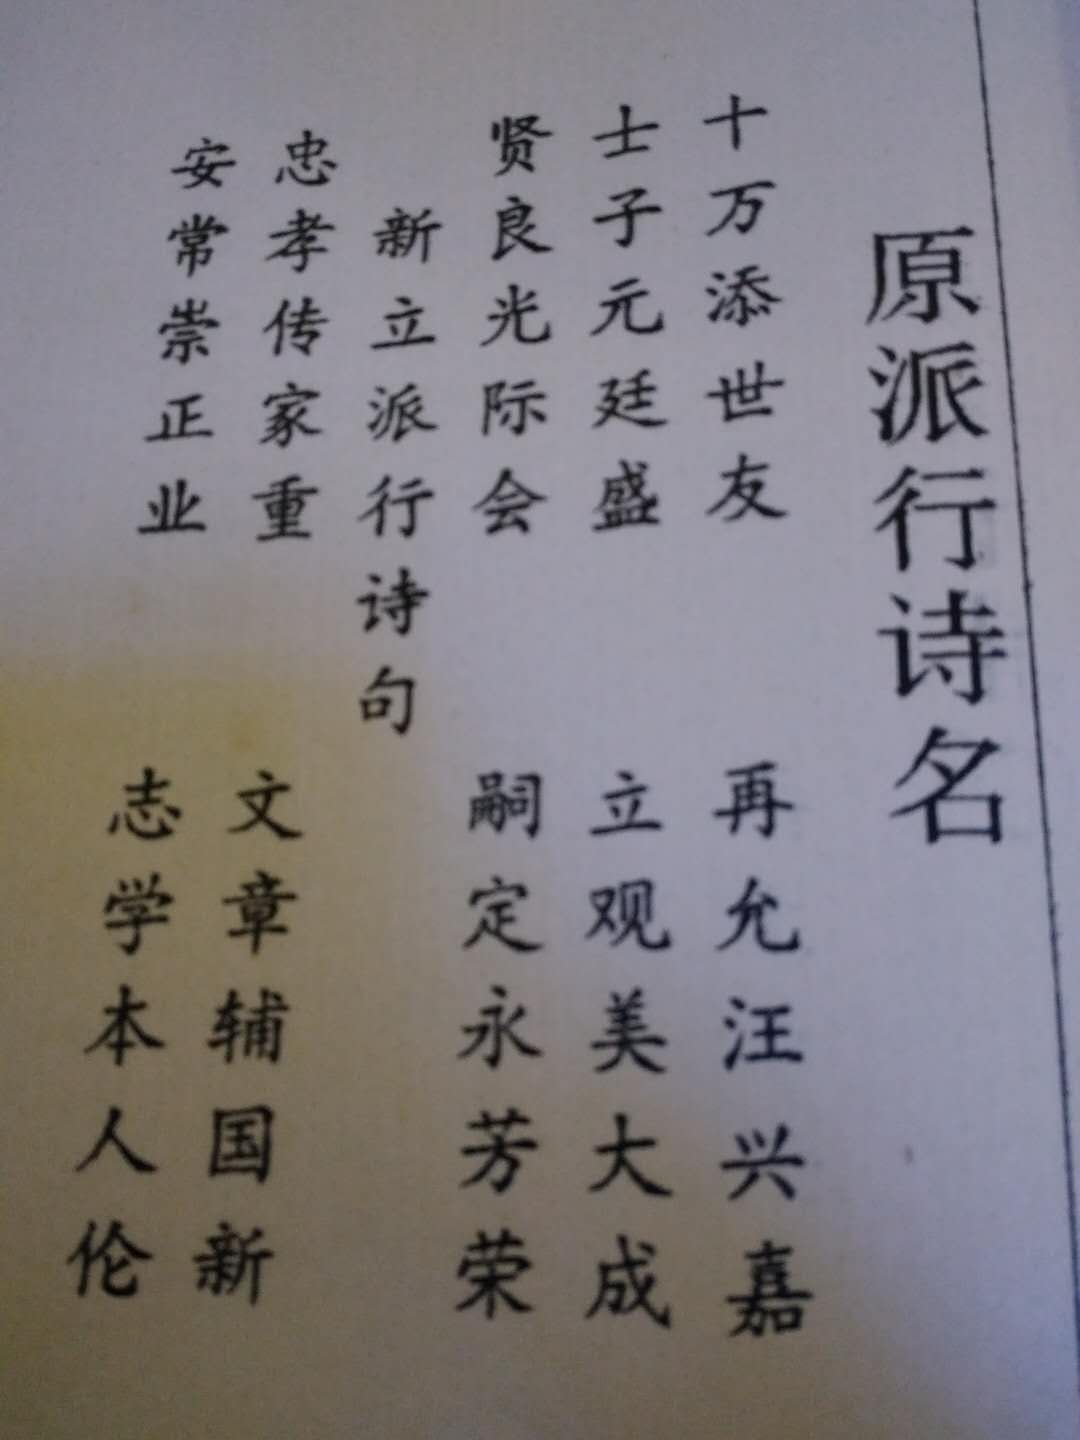 原派行诗名
十万添世友 再允汪兴嘉
士子元廷盛 立观美大成
贤良光际会 嗣定永芳荣
新立派行诗句
忠孝传家重 文章辅国新
安常崇正业 志学本人伦